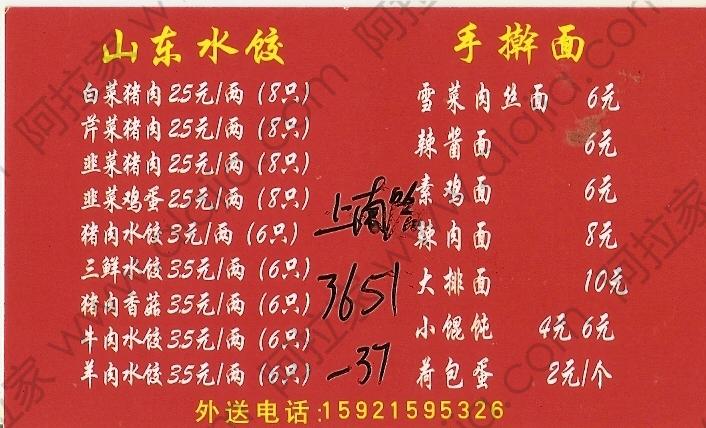 山东水饺
白菜猪肉25元/两（8只）
芹菜猪肉25元/两（8只）
韭菜猪肉25元/两（8只）
韭菜鸡蛋25元/两（8只）
猪肉水饺3元/两（6只）
三鲜水饺35元/两（6只）
猪肉香菇35元/两（6只）
牛肉水饺35元/两（6只）
羊肉水饺35元/两（6只）
手擀面
雪菜肉丝面 6元
辣酱面 6元
素鸡面 6元
辣肉面 8元
大排面 10元
小馄饨 4元 6元
荷包蛋 2元/个
上南路
3651
-37
外送电话:15921595326
阿拉家 www.dlajia.com